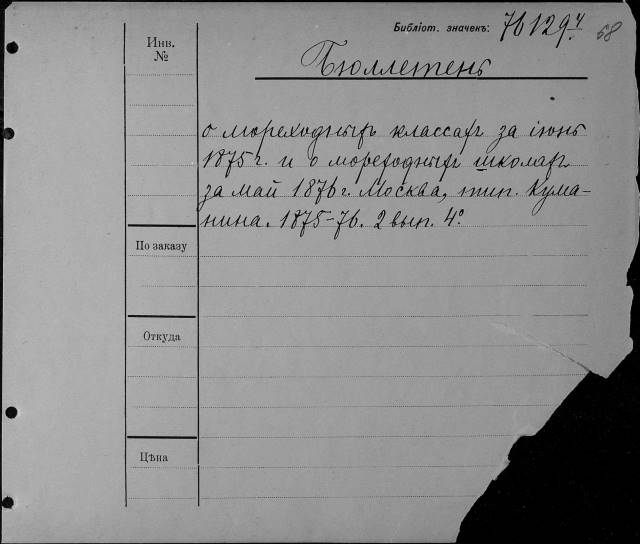 Библіот. значекъ: 76129.4 58
Инв. №
Бюллетень
о мореходныхъ классахъ за іюнь
1875 г. и о мореходныхъ школахъ
за май 1876 г. Москва, тип. Кума-
нина. 1875-76. 2 вып. 4°.
По заказу
Откуда
Цѣна